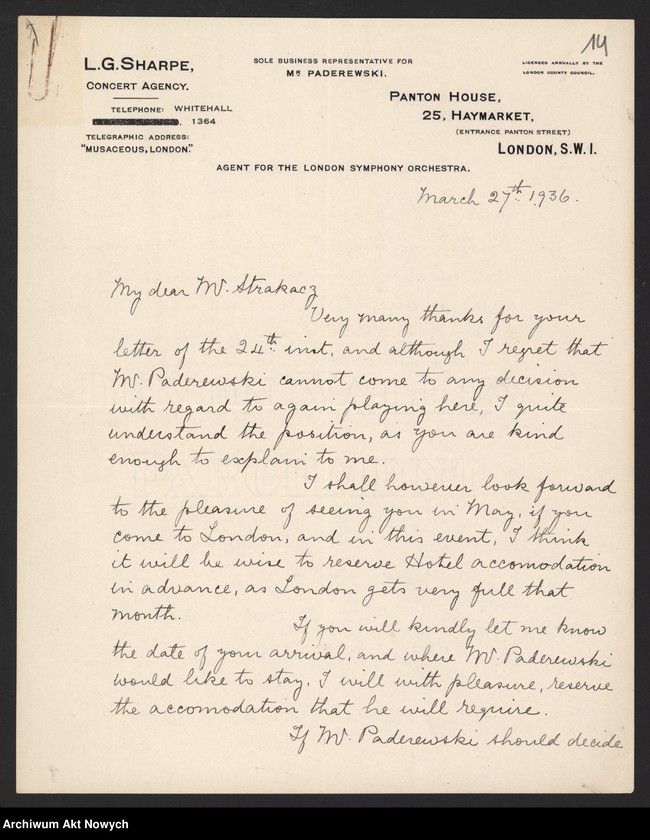 14
L.G. SHARPE,
CONCERT AGENCY.
TELEPHONE: WHITEHALL
1364
TELEGRAPHIC ADDRESS:
"MUSACEOUS, LONDON."
SOLE BUSINESS REPRESENTATIVE FOR
MR PADEREWSKI.
LICENSED ANNUALLY BY THE
LONDON COUNTY COUNCIL.
PANTON HOUSE,
25, HAYMARKET,
(ENTRANCE PANTON STREET)
LONDON, S.W.1.
AGENT FOR THE LONDON SYMPHONY ORCHESTRA.
March 27th 1936.
My dear Mr. Strakacz
Very many thanks for your
letter of the 24th inst, and although I regret that
Mr. Paderewski cannot come to any decision
with regard to again playing here, I quite
understand the position, as you are kind
enough to explain to me.
I shall however look forward
to the pleasure of seeing you in May, if you
come to London, and in this event, I think
it will be wise to reserve Hotel accomodation
in advance, as London gets very full that
month.
If you will kindly let me know
the date of your arrival, and where Mr. Paderewski
would like to stay, I will with pleasure, reserve
the accomodation that he will require.
If Mr. Paderewski should decide
Archiwum Akt Nowych